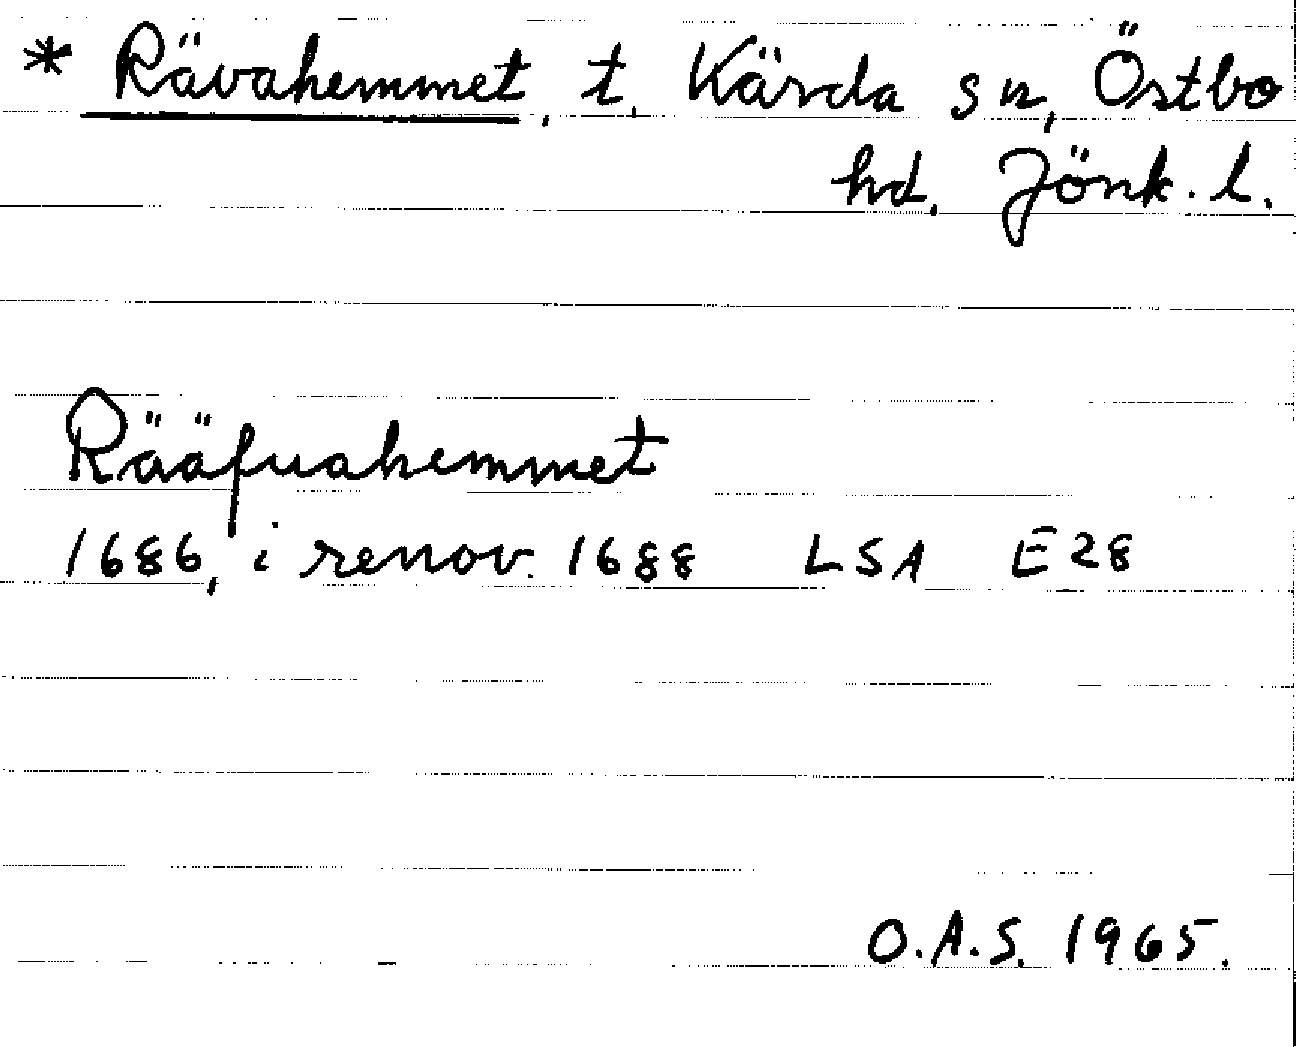 * Rävahemmet, t. Kärda sn, Östbo
hd. Jönk. l.
Rääfuahemmet
1686, i renov. 1688 LSA E28
O.A.S. 1965.